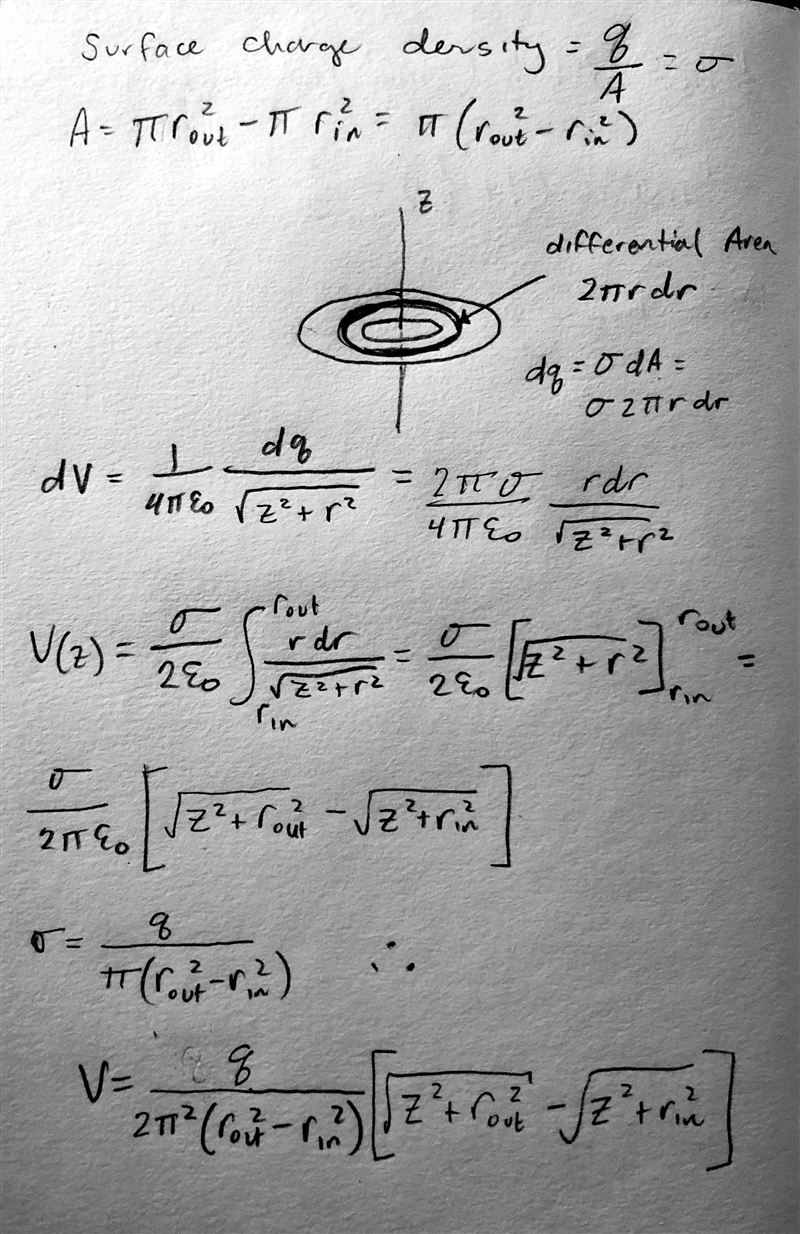 Surface charge density = q/A = σ
A = πr_out² - π r_in² = π(r_out² - r_in²)
z
differential Area
2πr dr
dq = σ dA =
σ 2πr dr
dV = 1/(4πε₀) dq/√(z²+r²) = 2πσ/(4πε₀) r dr/√(z²+r²)
V(z) = σ/(2ε₀) ∫_{r_in}^{r_out} r dr/√(z²+r²) = σ/(2ε₀) [√(z²+r²)]_{r_in}^{r_out} =
σ/(2πε₀) [√(z²+r_out²) - √(z²+r_in²)]
σ = q/(π(r_out² - r_in²)) ∴
V = q/(2π²(r_out² - r_in²)) [√(z²+r_out²) - √(z²+r_in²)]